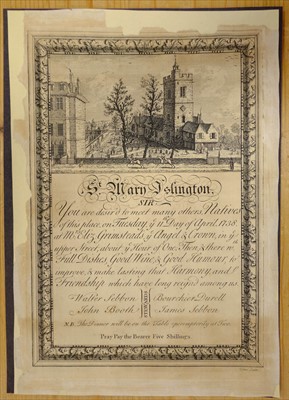 St. Mary Islington.
SIR
You are desir'd to meet many others, Natives
of this place, on Tuesday ye 11 Day of April, 1738.
at Mrs Eliz. Grimstead's ye Angel & Crown, in ye
upper Street, about ye Hour of One; Then, & there wth
Full Dishes, Good Wine, & Good Humour, to
improve & make lasting that Harmony, and
Friendship which have long reigned among us
Walter Sebbon
John Booth
STEWARDS
Bourchier Durell
James Sebbon
N.B. The Dinner will be on the Table peremptorily at Two.
Pray Pay the Bearer Five Shillings.